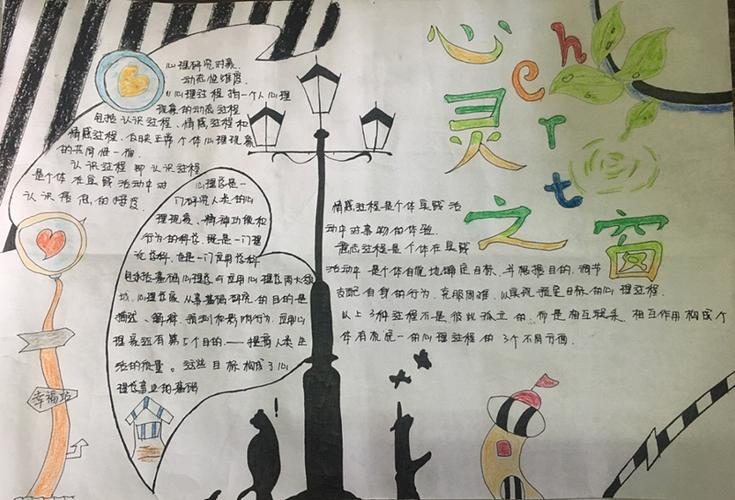 心灵之窗
heart
心理研究对象.
动态性维度.
心理过程指一个人心理
现象的动态过程
包括认识过程、情感过程和
情感过程、反映正常个体心理现象
的共同性一面.
认识过程 即认识过程
是个体在实践活动中对
认识信息的接受
心理学是一
门研究人类的心
理现象、精神功能和
行为的科学、既是一门理
论学科、也是一门应用学科
包括基础心理学与应用心理学两大领
域.心理学家从事基础研究的目的是
描述、解释、预测和影响行为.应用心
理学家还有第5个目的——提高人类生
活的质量。这些目标构成了心
理学事业的基础
情感过程是个体实践活
动中对事物的体验.
意志过程是个体在实践
活动中是个体自觉地确定目标、并根据目的、调节
支配自身的行为、克服困难、以实现预定目标的心理过程.
以上3种过程不是彼此孤立的、而是相互联系、相互作用构成个
体有机统一的心理过程的3个不同方面.
幸福站
!